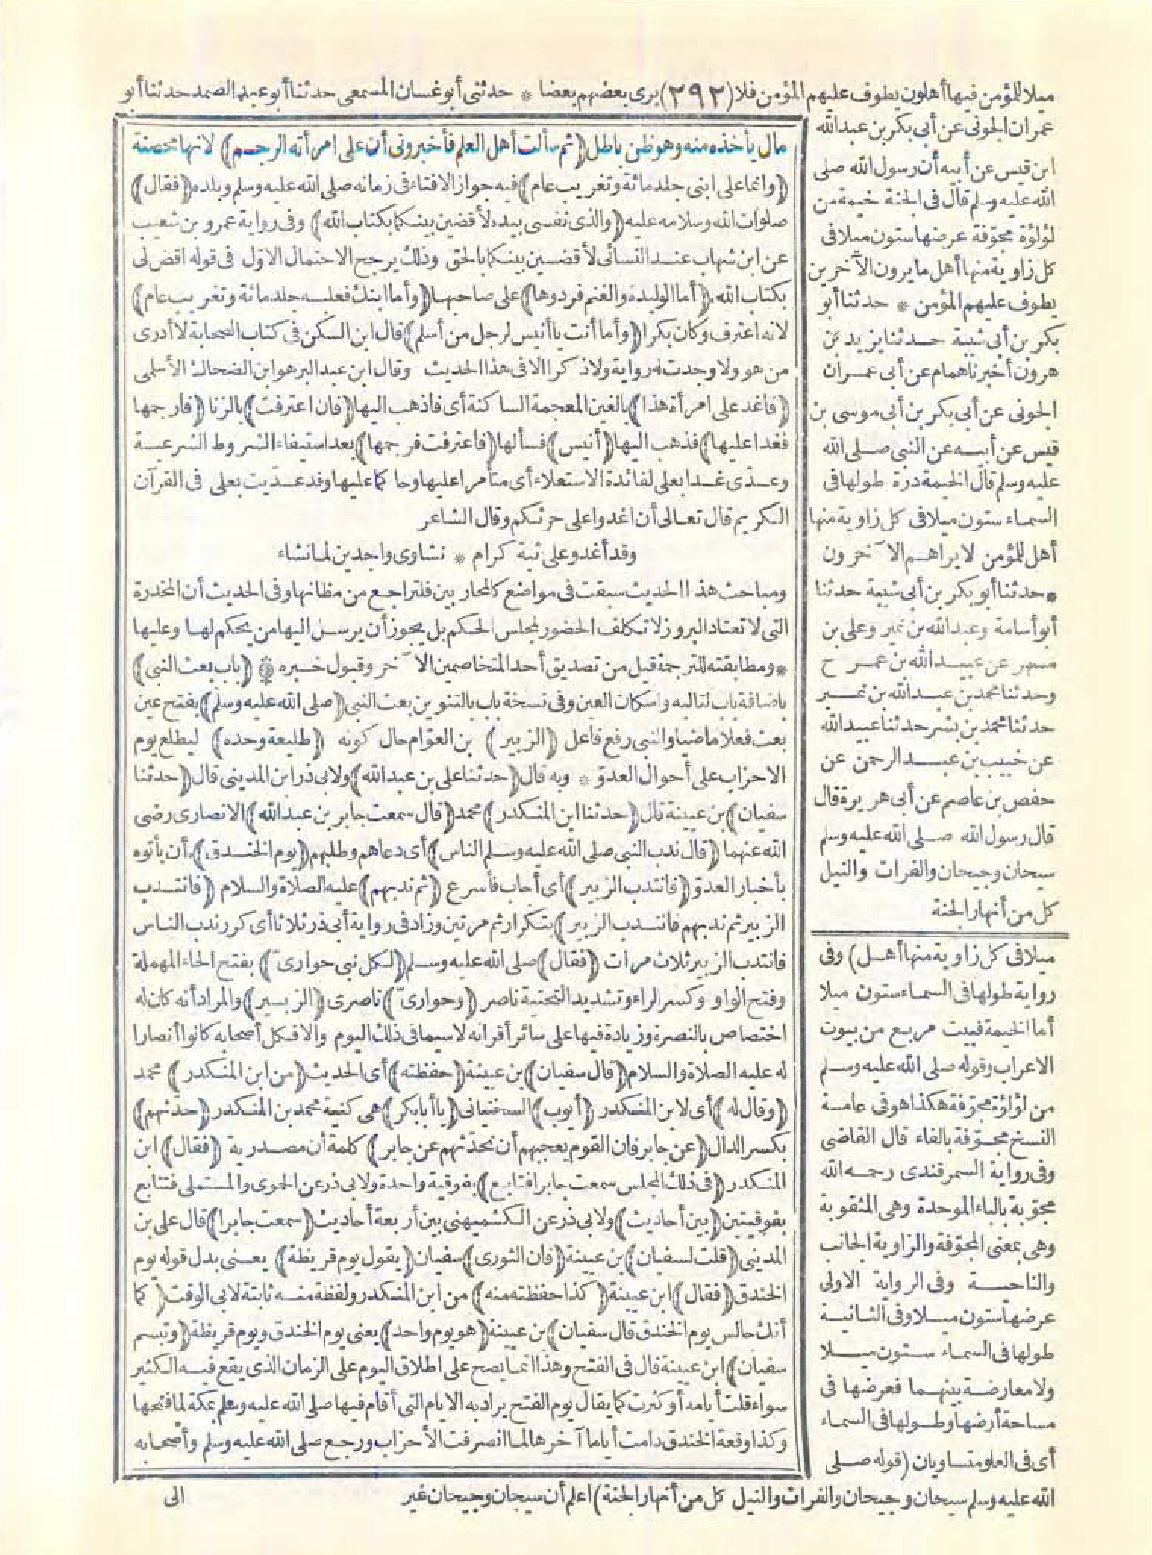 ميلا للمؤمن فيها أهلون يطوف عليهم المؤمن فلا (٢٩٢) يرى بعضهم بعضا * حدثني أبو غسان المسمعي حدثنا أبو عبد الصمد حدثنا أبو
عمران الجوني عن أبي بكر بن عبد الله
ابن قيس عن أبيه أن رسول الله صلى
الله عليه وسلم قال في الجنة خيمة من
لؤلؤة مجوّفة عرضها ستون ميلا في
كل زاوية منها أهل ما يرون الآخرين
يطوف عليهم المؤمن * حدثنا أبو
بكر بن أبي شيبة حدثنا يزيد بن
هرون أخبرنا همام عن أبي عمران
الجوني عن أبي بكر بن أبي موسى بن
قيس عن أبيه عن النبي صلى الله
عليه وسلم قال الخيمة درة طولها في
السماء ستون ميلا في كل زاوية منها
أهل للمؤمن لا يراهم الآخرون
* حدثنا أبو بكر بن أبي شيبة حدثنا
أبو أسامة وعبد الله بن نمير وعلي بن
مسهر عن عبيد الله بن عمر ح
وحدثنا محمد بن عبد الله بن نمير
حدثنا محمد بن بشر حدثنا عبيد الله
عن خبيب بن عبد الرحمن عن
حفص بن عاصم عن أبي هريرة قال
قال رسول الله صلى الله عليه وسلم
سيحان وجيحان والفرات والنيل
كل من أنهار الجنة
ميلا في كل زاوية منها أهل) وفي
رواية طولها في السماء ستون ميلا
أما الخيمة فبيت مربع من بيوت
الاعراب وقوله صلى الله عليه وسلم
من لؤلؤة مجوّفة هكذا هو في عامة
النسخ مجوّفة بالفاء قال القاضي
وفي رواية السمرقندي رحمه الله
مجوّبة بالباء الموحدة وهي المثقوبة
وهي بمعنى المجوّفة والزاوية الجانب
والناحية وفي الرواية الاولى
عرضها ستون ميلا وفي الثانية
طولها في السماء ستون ميلا
ولا معارضة بينهما فعرضها في
مساحة أرضها وطولها في السماء
أي في العلو متساويان (قوله صلى
الله عليه وسلم سيحان وجيحان والفرات والنيل كل من أنهار الجنة) اعلم أن سيحان وجيحان غير
مال يأخذه منه وهو ظن باطل (ثم سألت أهل العلم فأخبروني أن على امرأته الرجم) لانها محصنة
(وانما على ابني جلد مائة وتغريب عام) فيه جواز الافتاء في زمانه صلى الله عليه وسلم وبلده (فقال)
صلوات الله وسلامه عليه (والذي نفسي بيده لأقضين بينكما بكتاب الله) وفي رواية عمرو بن شعيب
عن ابن شهاب عند النسائي لأقضين بينكما بالحق وذلك يرجح الاحتمال الاوّل في قوله اقض لي
بكتاب الله (أما الوليدة والغنم فردوها) على صاحبها (وأما ابنك فعليه جلد مائة وتغريب عام)
لانه اعترف وكان بكرا (وأما أنت يا أنيس لرجل من أسلم) قال ابن السكن في كتاب الصحابة لا أدري
من هو ولا وجدت له رواية ولا ذكرا الا في هذا الحديث وقال ابن عبد البر هو ابن الضحاك الأسلمي
(فاغد على امرأة هذا) بالغين المعجمة الساكنة أي فاذهب اليها (فان اعترفت) بالزنا (فارجمها
فغدا عليها) فذهب اليها (أنيس) فسألها (فاعترفت فرجمها) بعد استيفاء الشروط الشرعية
وعدّى غدا بعلى لفائدة الاستعلاء أي متأمرا عليها وحاكما عليها وقد عدّيت بعلى في القرآن
الكريم قال تعالى أن اغدوا على حرثكم وقال الشاعر
وقد أغدو على ثبة كرام * نشاوى واجدين لما نشاء
ومباحث هذا الحديث سبقت في مواضع كالمحاربين فلتراجع من مظانها وفي الحديث أن المخدرة
التي لا تعتاد البروز لا تكلف الحضور لمجلس الحكم بل يجوز أن يرسل اليها من يحكم لها وعليها
* ومطابقته للترجمة قيل من تصديق أحد المتخاصمين الآخر وقبول خبره * (باب بعث النبي)
باضافة باب لتاليه واسكان العين وفي نسخة باب بالتنوين بعث النبي (صلى الله عليه وسلم) بفتح عين
بعث فعلا ماضيا والنبي رفع فاعل (الزبير) بن العوّام حال كونه (طليعة وحده) ليطلع يوم
الاحزاب على أحوال العدوّ * وبه قال (حدثنا علي بن عبد الله) ولابي ذر ابن المديني قال (حدثنا
سفيان) بن عيينة قال (حدثنا ابن المنكدر) محمد (قال سمعت جابر بن عبد الله) الانصاري رضي
الله عنهما (قال ندب النبي صلى الله عليه وسلم الناس) أي دعاهم وطلبهم (يوم الخندق) أن يأتوه
بأخبار العدوّ (فانتدب الزبير) أي أجاب فأسرع (ثم ندبهم) عليه الصلاة والسلام (فانتدب
الزبير ثم ندبهم فانتدب الزبير) بتكرار ثم مرتين وزاد في رواية أبي ذر ثلاثا أي كرر ندب الناس
فانتدب الزبير ثلاث مرات (فقال) صلى الله عليه وسلم (لكل نبي حواريّ) بفتح الحاء المهملة
وفتح الواو وكسر الراء وتشديد التحتية ناصر (وحواريّ) ناصري (الزبير) والمراد أنه كان له
اختصاص بالنصرة وزيادة فيها على سائر أقرانه لا سيما في ذلك اليوم والا فكل أصحابه كانوا أنصارا
له عليه الصلاة والسلام (قال سفيان) بن عيينة (حفظته) أي الحديث (من ابن المنكدر) محمد
(وقال له) أي لابن المنكدر (أيوب) السختياني (يا أبا بكر) هي كنية محمد بن المنكدر (حدثهم)
بكسر الدال (عن جابر فان القوم يعجبهم أن تحدّثهم عن جابر) كلمة أن مصدرية (فقال) ابن
المنكدر (في ذلك المجلس سمعت جابرا فتابع) بفوقية واحدة ولابي ذر عن الحموي والمستملي فتتابع
بفوقيتين (بين أحاديث) ولابي ذر عن الكشميهني بين أربعة أحاديث (سمعت جابرا) قال علي بن
المديني (قلت لسفيان) بن عيينة (فان الثوري) سفيان (يقول يوم قريظة) يعني بدل قوله يوم
الخندق (فقال) ابن عيينة (كذا حفظته منه) من ابن المنكدر ولفظة منه ثابتة لابي الوقت (كما
أنك جالس يوم الخندق قال سفيان) بن عيينة (هو يوم واحد) يعني يوم الخندق ويوم قريظة (وتبسم
سفيان) ابن عيينة قال في الفتح وهذا انما يصح على اطلاق اليوم على الزمان الذي يقع فيه الكثير
سواء قلت أيامه أو كثرت كما يقال يوم الفتح يراد به الايام التي أقام فيها صلى الله عليه وسلم بمكة لما فتحها
وكذا وقعة الخندق دامت أياما آخرها لما انصرفت الأحزاب ورجع صلى الله عليه وسلم وأصحابه
الى